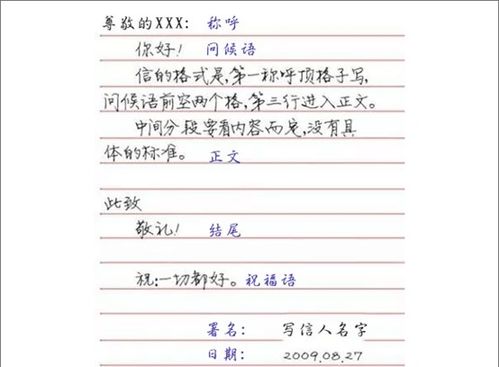 尊敬的XXX: 称呼
你好! 问候语
信的格式是,第一称呼顶格子写,
问候语前空两个格,第三行进入正文。
中间分段要看内容而定,没有具
体的标准。 正文
此致
敬礼! 结尾
祝:一切都好。祝福语
署名: 写信人名字
日期: 2009.08.27